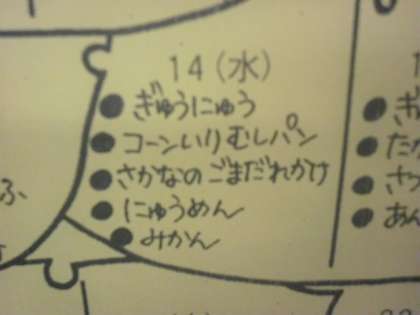 14(水)
●ぎゅうにゅう
●コーンいりむしパン
●さかなのごまだれかけ
●にゅうめん
●みかん
ふ
1
●ぎ
●たか
●さつ
●あん